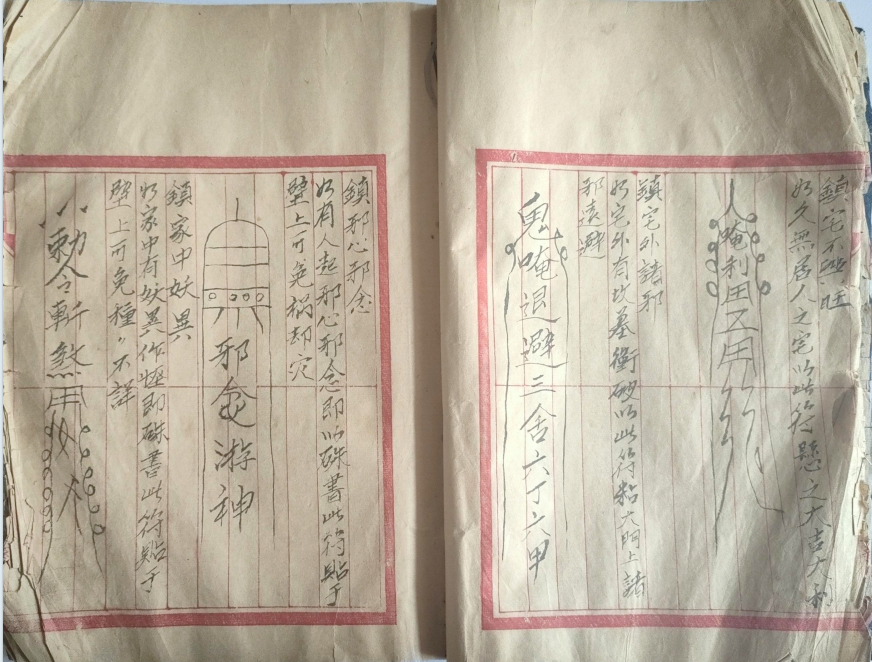 鎮宅不興旺
如久無居人之宅以此符懸之大吉大利
唵利用
鎮宅外諸邪
如宅外有坟墓衝破以此符粘大門上諸
邪遠避
鬼唵退避三舍六丁六甲
鎮邪心邪念
如有人起邪心邪念即以硃書此符貼于
壁上可免禍却灾
邪念游神
鎮家中妖異
如家中有妖異作怪即硃書此符貼于
壁上可免種〃不詳
勅令斬煞用